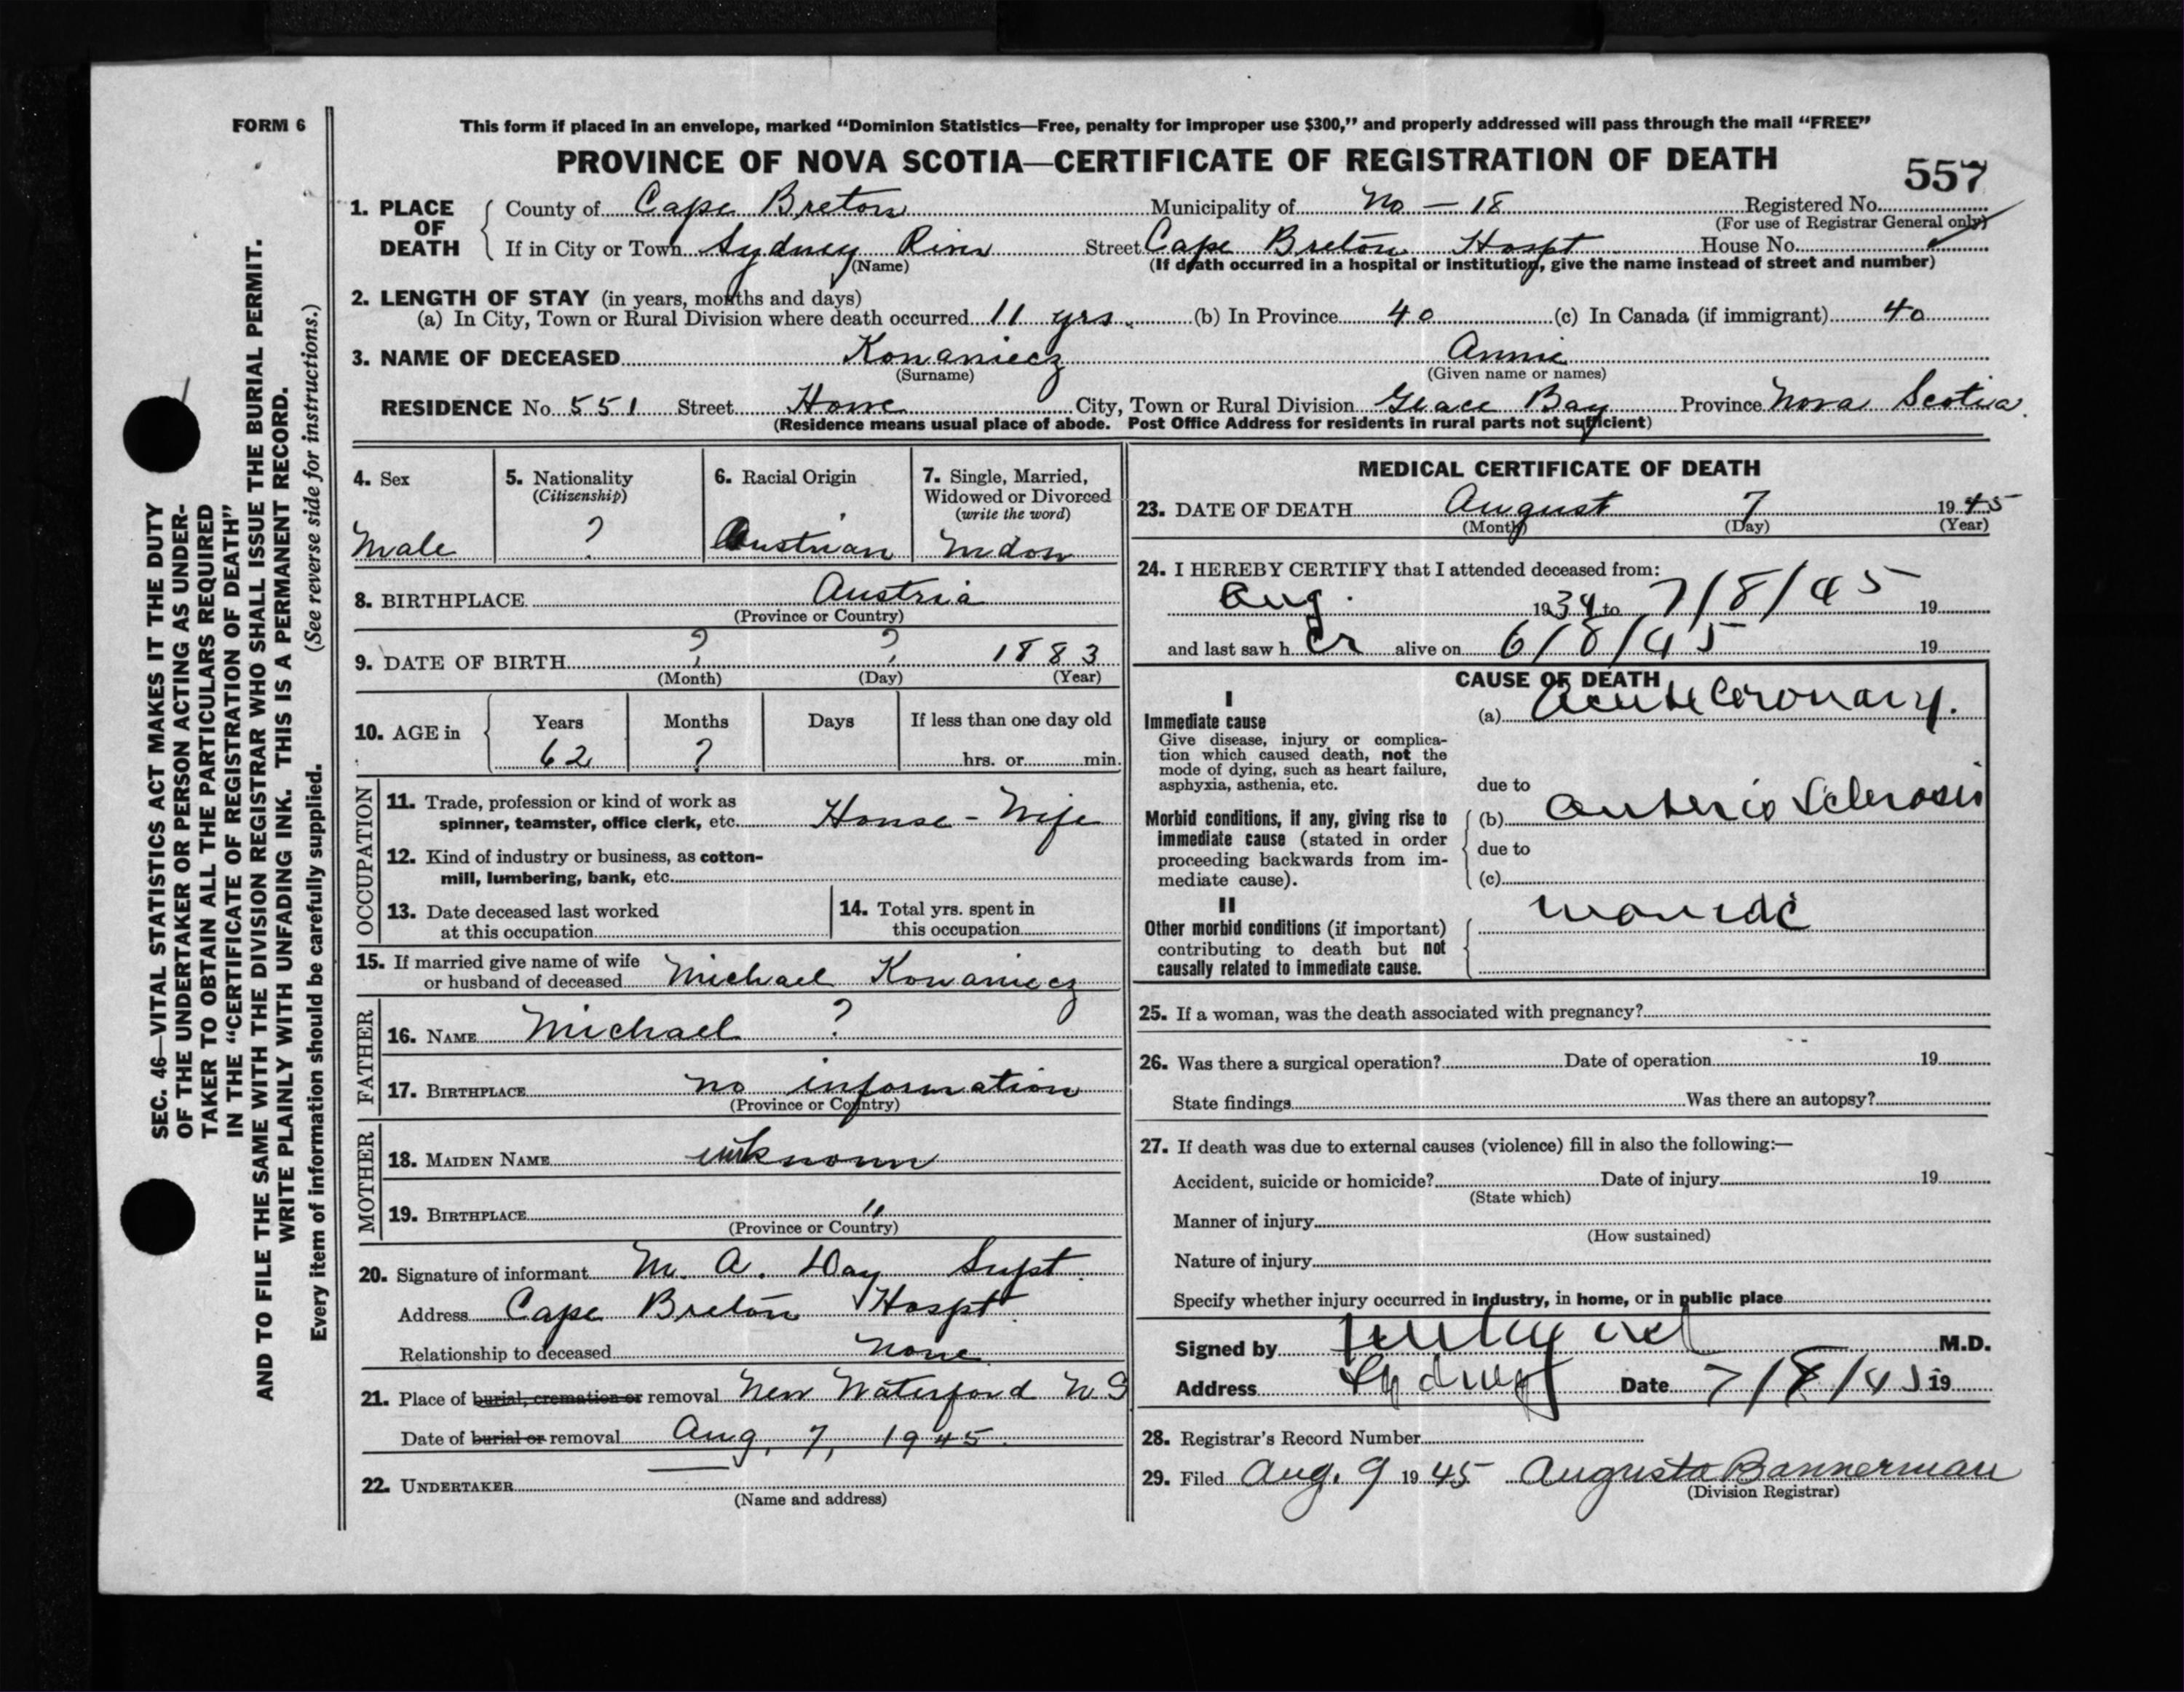 FORM 6
This form if placed in an envelope, marked “Dominion Statistics—Free, penalty for improper use $300,” and properly addressed will pass through the mail “FREE”
PROVINCE OF NOVA SCOTIA—CERTIFICATE OF REGISTRATION OF DEATH
557
1. PLACE OF DEATH
County of Cape Breton Municipality of No - 18 Registered No.
(For use of Registrar General only)
If in City or Town Sydney River Street Cape Breton Hospt House No.
(Name) (If death occurred in a hospital or institution, give the name instead of street and number)
2. LENGTH OF STAY (in years, months and days)
(a) In City, Town or Rural Division where death occurred 11 yrs. (b) In Province 40 (c) In Canada (if immigrant) 40
3. NAME OF DECEASED Konaniecz Annie
(Surname) (Given name or names)
RESIDENCE No. 551 Street Howe City, Town or Rural Division Glace Bay Province Nova Scotia.
(Residence means usual place of abode. Post Office Address for residents in rural parts not sufficient)
4. Sex
Male
5. Nationality
(Citizenship)
?
6. Racial Origin
Austrian
7. Single, Married,
Widowed or Divorced
(write the word)
Widow
8. BIRTHPLACE Austria
(Province or Country)
9. DATE OF BIRTH ? ? 1883
(Month) (Day) (Year)
10. AGE in
Years Months Days If less than one day old
62 ? hrs. or min.
OCCUPATION
11. Trade, profession or kind of work as
spinner, teamster, office clerk, etc. House-Wife
12. Kind of industry or business, as cotton-
mill, lumbering, bank, etc.
13. Date deceased last worked
at this occupation
14. Total yrs. spent in
this occupation
15. If married give name of wife
or husband of deceased Michael Konaniecz
FATHER
16. NAME Michael ?
17. BIRTHPLACE no information
(Province or Country)
MOTHER
18. MAIDEN NAME unknown
19. BIRTHPLACE "
(Province or Country)
20. Signature of informant M. A. Day Supt.
Address Cape Breton Hospt.
Relationship to deceased None
21. Place of burial, cremation or removal New Waterford N S
Date of burial or removal Aug. 7, 1945.
22. UNDERTAKER
(Name and address)
MEDICAL CERTIFICATE OF DEATH
23. DATE OF DEATH August 7 1945
(Month) (Day) (Year)
24. I HEREBY CERTIFY that I attended deceased from:
Aug. 1934 to 7/8/45 19
and last saw h er alive on 6/8/45 19
CAUSE OF DEATH
I
Immediate cause
Give disease, injury or complica-
tion which caused death, not the
mode of dying, such as heart failure,
asphyxia, asthenia, etc.
(a) Acute Coronary.
due to
Morbid conditions, if any, giving rise to
immediate cause (stated in order
proceeding backwards from im-
mediate cause).
(b) Arterio Sclerosis
due to
(c)
II
Other morbid conditions (if important)
contributing to death but not
causally related to immediate cause.
25. If a woman, was the death associated with pregnancy?
26. Was there a surgical operation? Date of operation 19
State findings Was there an autopsy?
27. If death was due to external causes (violence) fill in also the following:—
Accident, suicide or homicide? Date of injury 19
(State which)
Manner of injury
(How sustained)
Nature of injury
Specify whether injury occurred in industry, in home, or in public place
Signed by M.D.
Address Sydney Date 7/8/45 19
28. Registrar's Record Number
29. Filed Aug. 9 1945 Augusta Bannerman
(Division Registrar)
SEC. 46—VITAL STATISTICS ACT MAKES IT THE DUTY
OF THE UNDERTAKER OR PERSON ACTING AS UNDER-
TAKER TO OBTAIN ALL THE PARTICULARS REQUIRED
IN THE “CERTIFICATE OF REGISTRATION OF DEATH”
AND TO FILE THE SAME WITH THE DIVISION REGISTRAR WHO SHALL ISSUE THE BURIAL PERMIT.
WRITE PLAINLY WITH UNFADING INK. THIS IS A PERMANENT RECORD.
Every item of information should be carefully supplied. (See reverse side for instructions.)